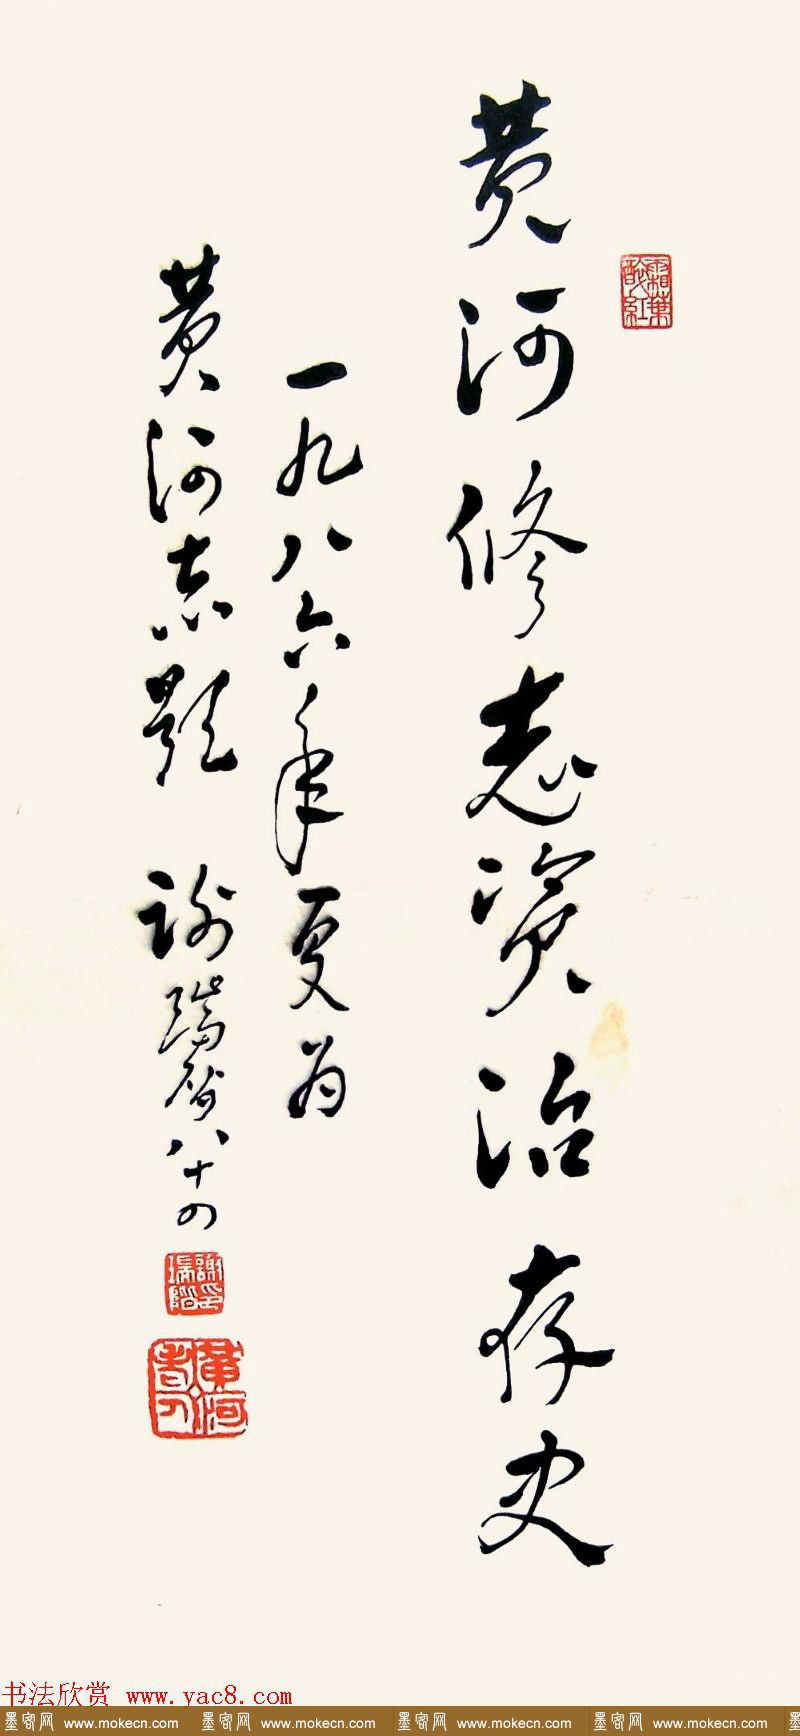 黄河修志资治存史
一九八六年夏为
黄河志题 谢瑞阶八十四
霜葉酸紅
謝瑞階印
黄河老人
书法欣赏 www.yac8.com
墨客网 www.mokecn.com 墨客网 www.mokecn.com 墨客网 www.mokecn.com 墨客网 www.mokecn.com